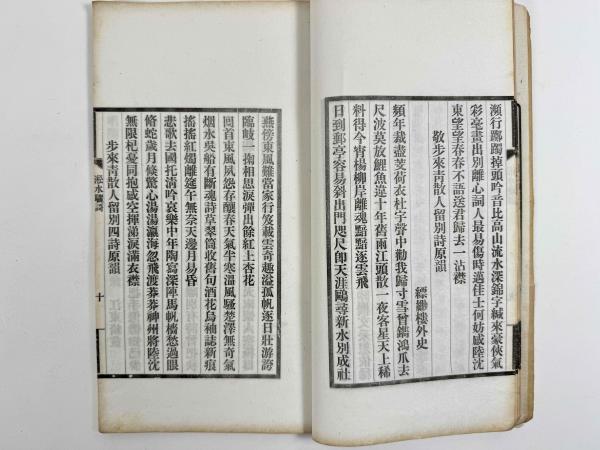 瀕行躑躅掉頭吟音比高山流水深錦字緘來豪俠氣
彩毫畫出別離心詞人最易傷時邁佳士何妨感陸沈
東望望春春不語送君歸去一沾襟
敬步來青散人留別詩原韻
縹緲樓外史
頻年裁盡芰荷衣杜宇聲中勸我歸寸雪曾鐫鴻爪去
尺波莫放鯉魚違十年舊雨江頭散一夜客星天上稀
料得今宵楊柳岸離魂黯黯逐雲飛
日到郵亭容易斜出門咫尺即天涯鷗尋新水別成社
燕傍東風難當家行笈載雲奇趣溢孤帆逐日壯游誇
臨岐一掬相思淚彈出餘紅上杏花
回首東風夙怨吞釀春天氣半寒溫風騷楚澤無奇氣
烟水吳船有斷魂詩草翠筒收舊句酒花烏袖誌新痕
搖搖紅燭離筵午無奈天邊月易昏
悲歌去國托清吟哀樂中年陶寫深陣馬帆檣愁過眼
脩蛇歲月倏驚心湯湯瀛海忽飛渡莽莽神州將陸沈
無限杞憂同抱感空揮涕淚滿衣襟
步來青散人留別四詩原韻
淞水驪詞
十